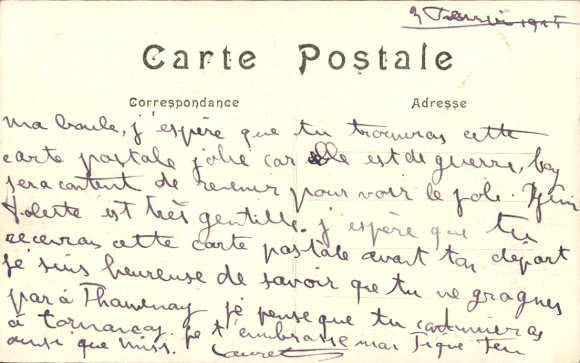 3 Février 1915
Carte Postale
Correspondance
Adresse
ma j'espère que tu trouveras cette
carte postale jolie car elle est de guerre,
sera content de revenir pour voir le
est très gentille. j'espère que tu
recevras cette carte postale avant ton départ
je suis heureuse de savoir que tu ne gragnes
par à je pense que tu continueras
à je t'embrasse
ainsi que miss.